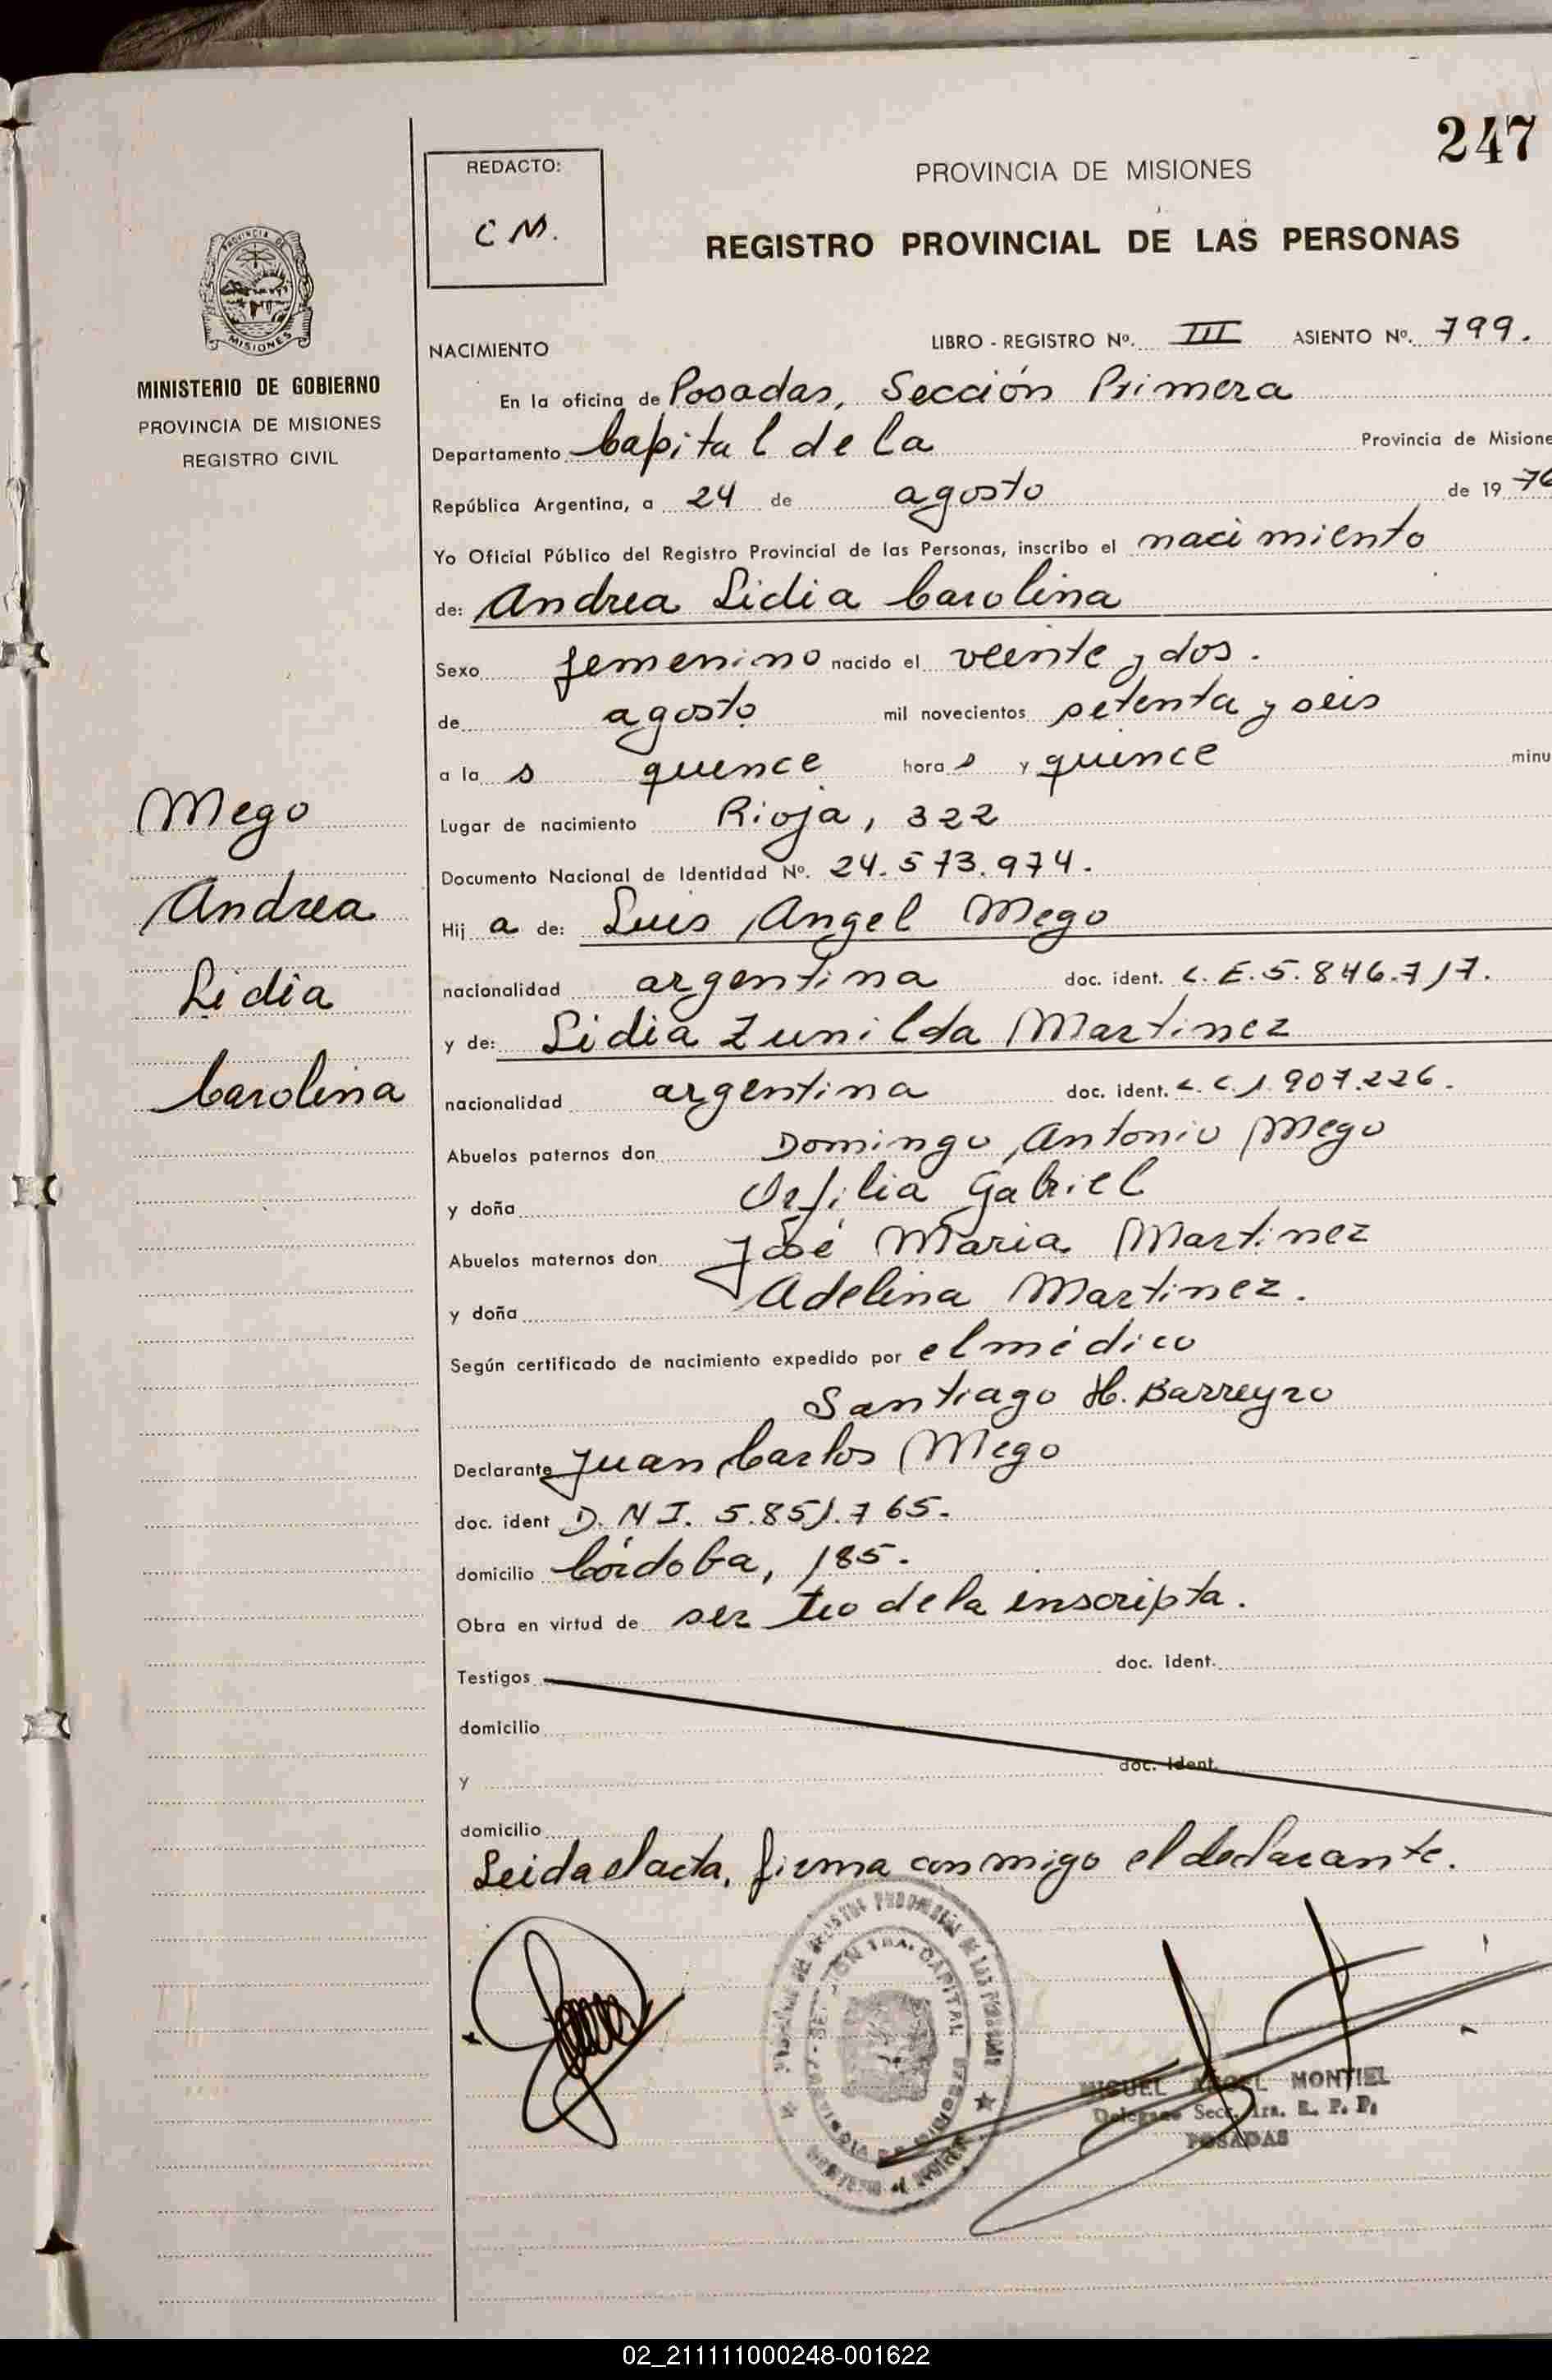 247
REDACTO:
C M.
PROVINCIA DE MISIONES
REGISTRO PROVINCIAL DE LAS PERSONAS
PROVINCIA DE
MISIONES
MINISTERIO DE GOBIERNO
PROVINCIA DE MISIONES
REGISTRO CIVIL
NACIMIENTO LIBRO - REGISTRO Nº. III ASIENTO Nº. 799.
En la oficina de Posadas, Sección Primera
Departamento Capital de la Provincia de Misione
República Argentina, a 24 de agosto de 19 76
Yo Oficial Público del Registro Provincial de las Personas, inscribo el nacimiento
de: Andrea Lidia Carolina
Sexo femenino nacido el veinte y dos.
de agosto mil novecientos setenta y seis
a la s quince hora s y quince minu
Lugar de nacimiento Rioja, 322
Documento Nacional de Identidad Nº. 24.573.974.
Hij a de: Luis Angel Mego
nacionalidad argentina doc. ident. L.E.5.846.717.
y de: Lidia Zunilda Martinez
nacionalidad argentina doc. ident. L.C.1.907.226.
Abuelos paternos don Domingo Antonio Mego
y doña Orfilia Gabriel
Abuelos maternos don José Maria Martinez
y doña Adelina Martinez.
Según certificado de nacimiento expedido por el médico
Santiago H. Barreyro
Declarante Juan Carlos Mego
doc. ident D.N.I. 5.851.765.
domicilio Córdoba, 185.
Obra en virtud de ser tio de la inscripta.
Testigos doc. ident.
domicilio
y doc. ident.
domicilio
Leida el acta, firma conmigo el declarante.
Mego
Andrea
Lidia
Carolina
MIGUEL ANGEL MONTIEL
Delegado Secc. 1ra. R. P. P.
POSADAS
02_211111000248-001622